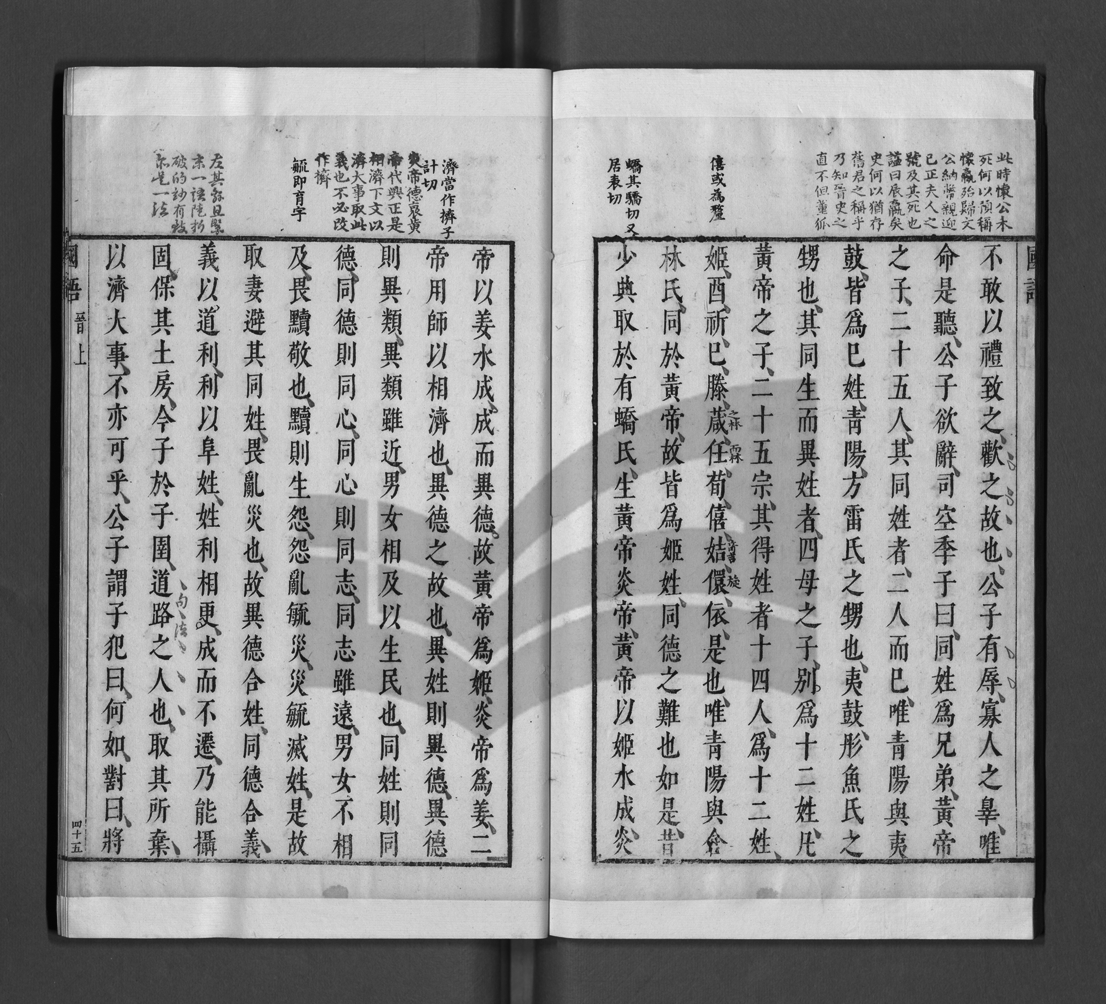 國語
此時懷公未
死何以預稱
懷嬴殆歸文
公納幣親迎
已正夫人之
號及其死也
謚曰辰嬴矣
史何以猶存
舊君之稱乎
乃知晉史之
直不但董狐
不敢以禮致之歡之故也公子有辱寡人之辠唯
命是聽公子欲辭司空季子曰同姓爲兄弟黃帝
之子二十五人其同姓者二人而已唯青陽與夷
鼓皆爲已姓青陽方雷氏之甥也夷鼓彤魚氏之
甥也其同生而異姓者四母之子別爲十二姓凡
黃帝之子二十五宗其得姓者十四人爲十二姓
僖或為釐
姬酉祈已滕葴任荀僖姞儇依是也唯青陽與倉
林氏同於黃帝故皆爲姬姓同德之難也如是昔
蟜其驕切又
居表切
少典取於有蟜氏生黃帝炎帝黃帝以姬水成炎
濟當作擠子
計切
帝以姜水成成而異德故黃帝爲姬炎帝爲姜二
帝用師以相濟也異德之故也異姓則異德異德
炎帝德衰黃
帝代興正是
相濟下文以
濟大事取此
義也不必改
作擠
則異類異類雖近男女相及以生民也同姓則同
德同德則同心同心則同志同志雖遠男女不相
毓即育字
及畏黷敬也黷則生怨怨亂毓災災毓滅姓是故
取妻避其同姓畏亂災也故異德合姓同德合義
義以道利利以阜姓姓利相更成而不遷乃能攝
固保其土房今子於子圉道路之人也取其所棄
句法
以濟大事不亦可乎公子謂子犯曰何如對曰將
國語
晉上
四十五